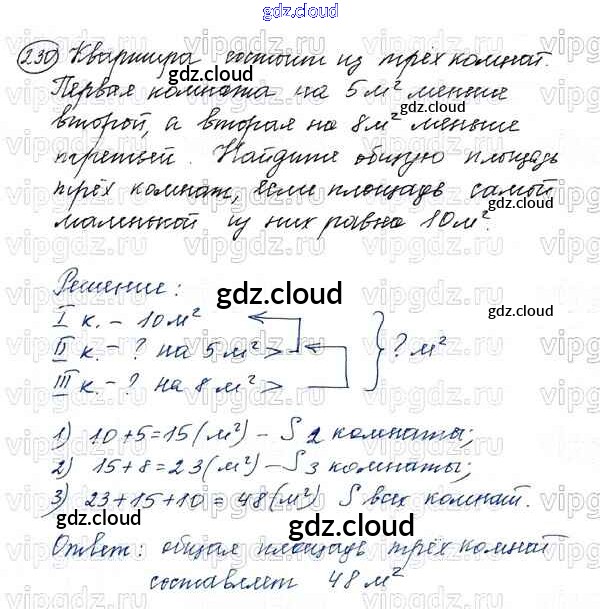 gdz.cloud
230) Квартира состоит из трёх комнат.
Первая комната на 5 м² меньше
второй, а вторая на 8 м² меньше
третьей. Найдите общую площадь
трёх комнат, если площадь самой
маленькой из них равна 10 м².
Решение:
I к. – 10 м²
II к. – ? на 5 м² > } ? м²
III к. – ? на 8 м² >
1) 10+5=15 (м²) – S 2 комнаты;
2) 15+8=23 (м²) – S 3 комнаты;
3) 23+15+10=48 (м²) S всех комнат.
Ответ: общая площадь трёх комнат
составляет 48 м²